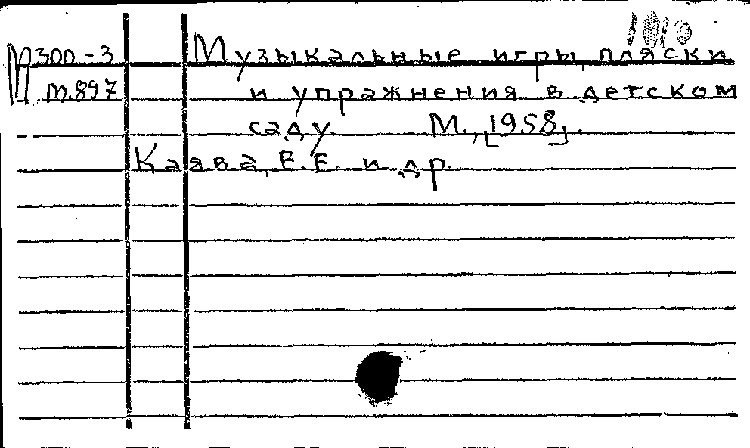 М300-3 Музыкальные игры, пляски
М.897 и упражнения в детском
саду. М., [1958].
Каява, Е.Е. и др.